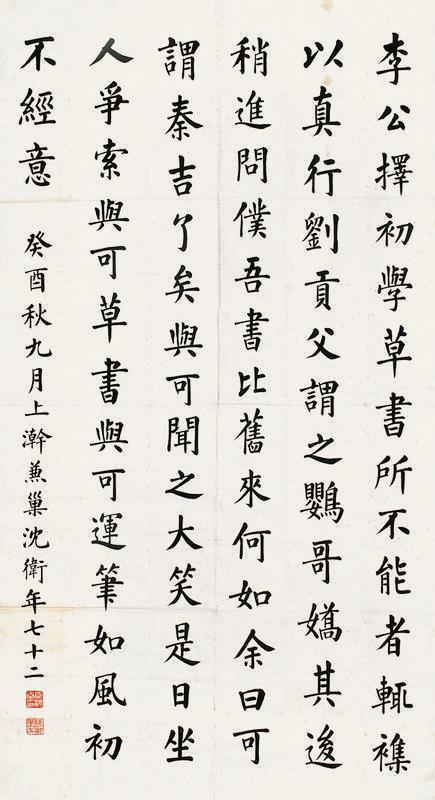 李公擇初學草書所不能者輒襍
以真行劉貢父謂之鸚哥嬌其後
稍進問僕吾書比舊來何如余曰可
謂秦吉了矣與可聞之大笑是日坐
人爭索與可草書與可運筆如風初
不經意
癸酉秋九月上澣兼巢沈衛年七十二